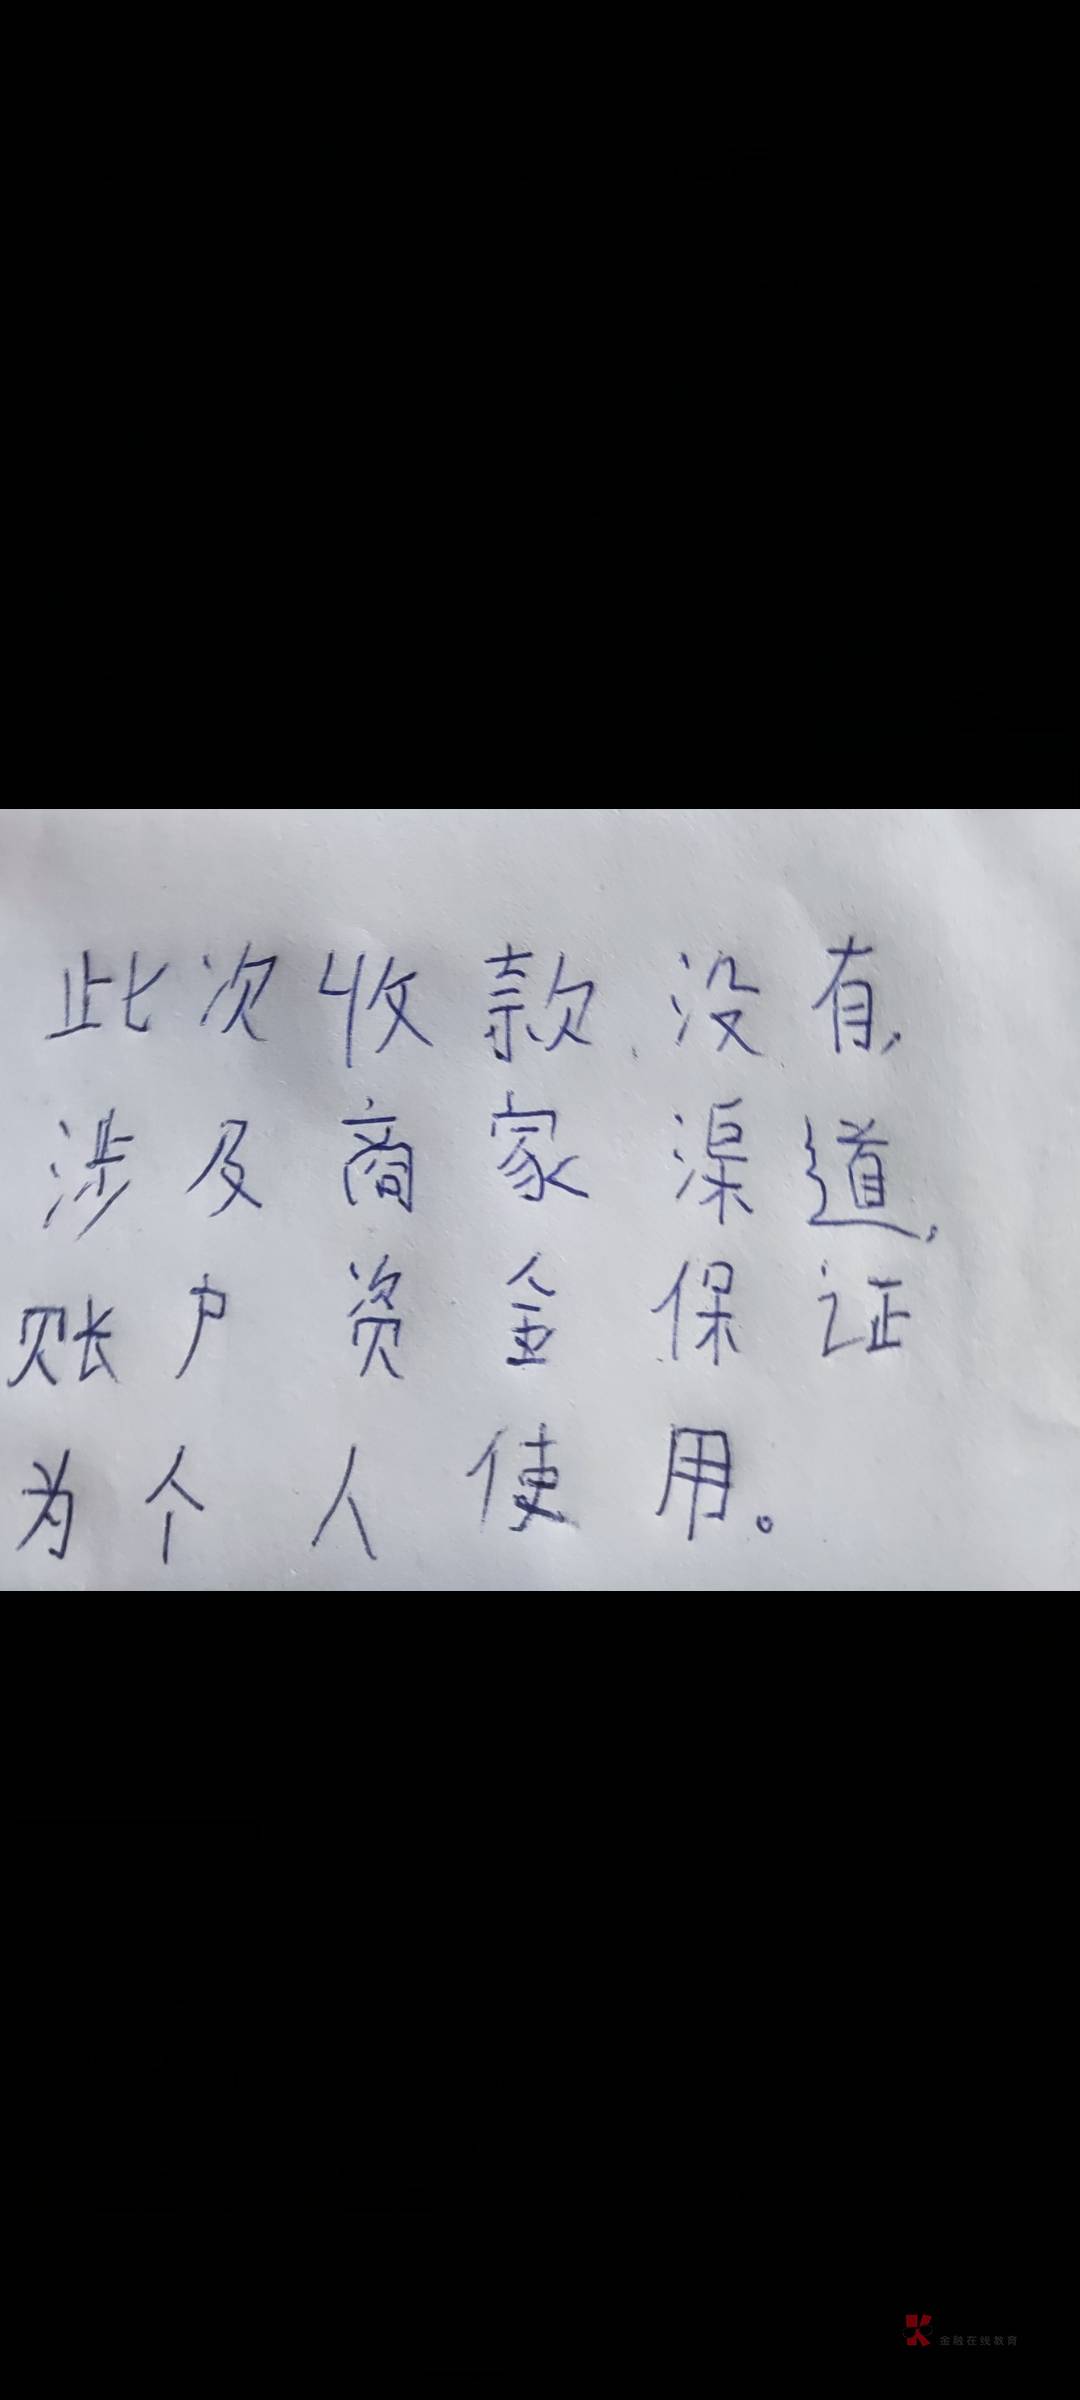 此次收款、没有,
涉及商家渠道,
账户资金保证
为个人使用。
金融在线教育